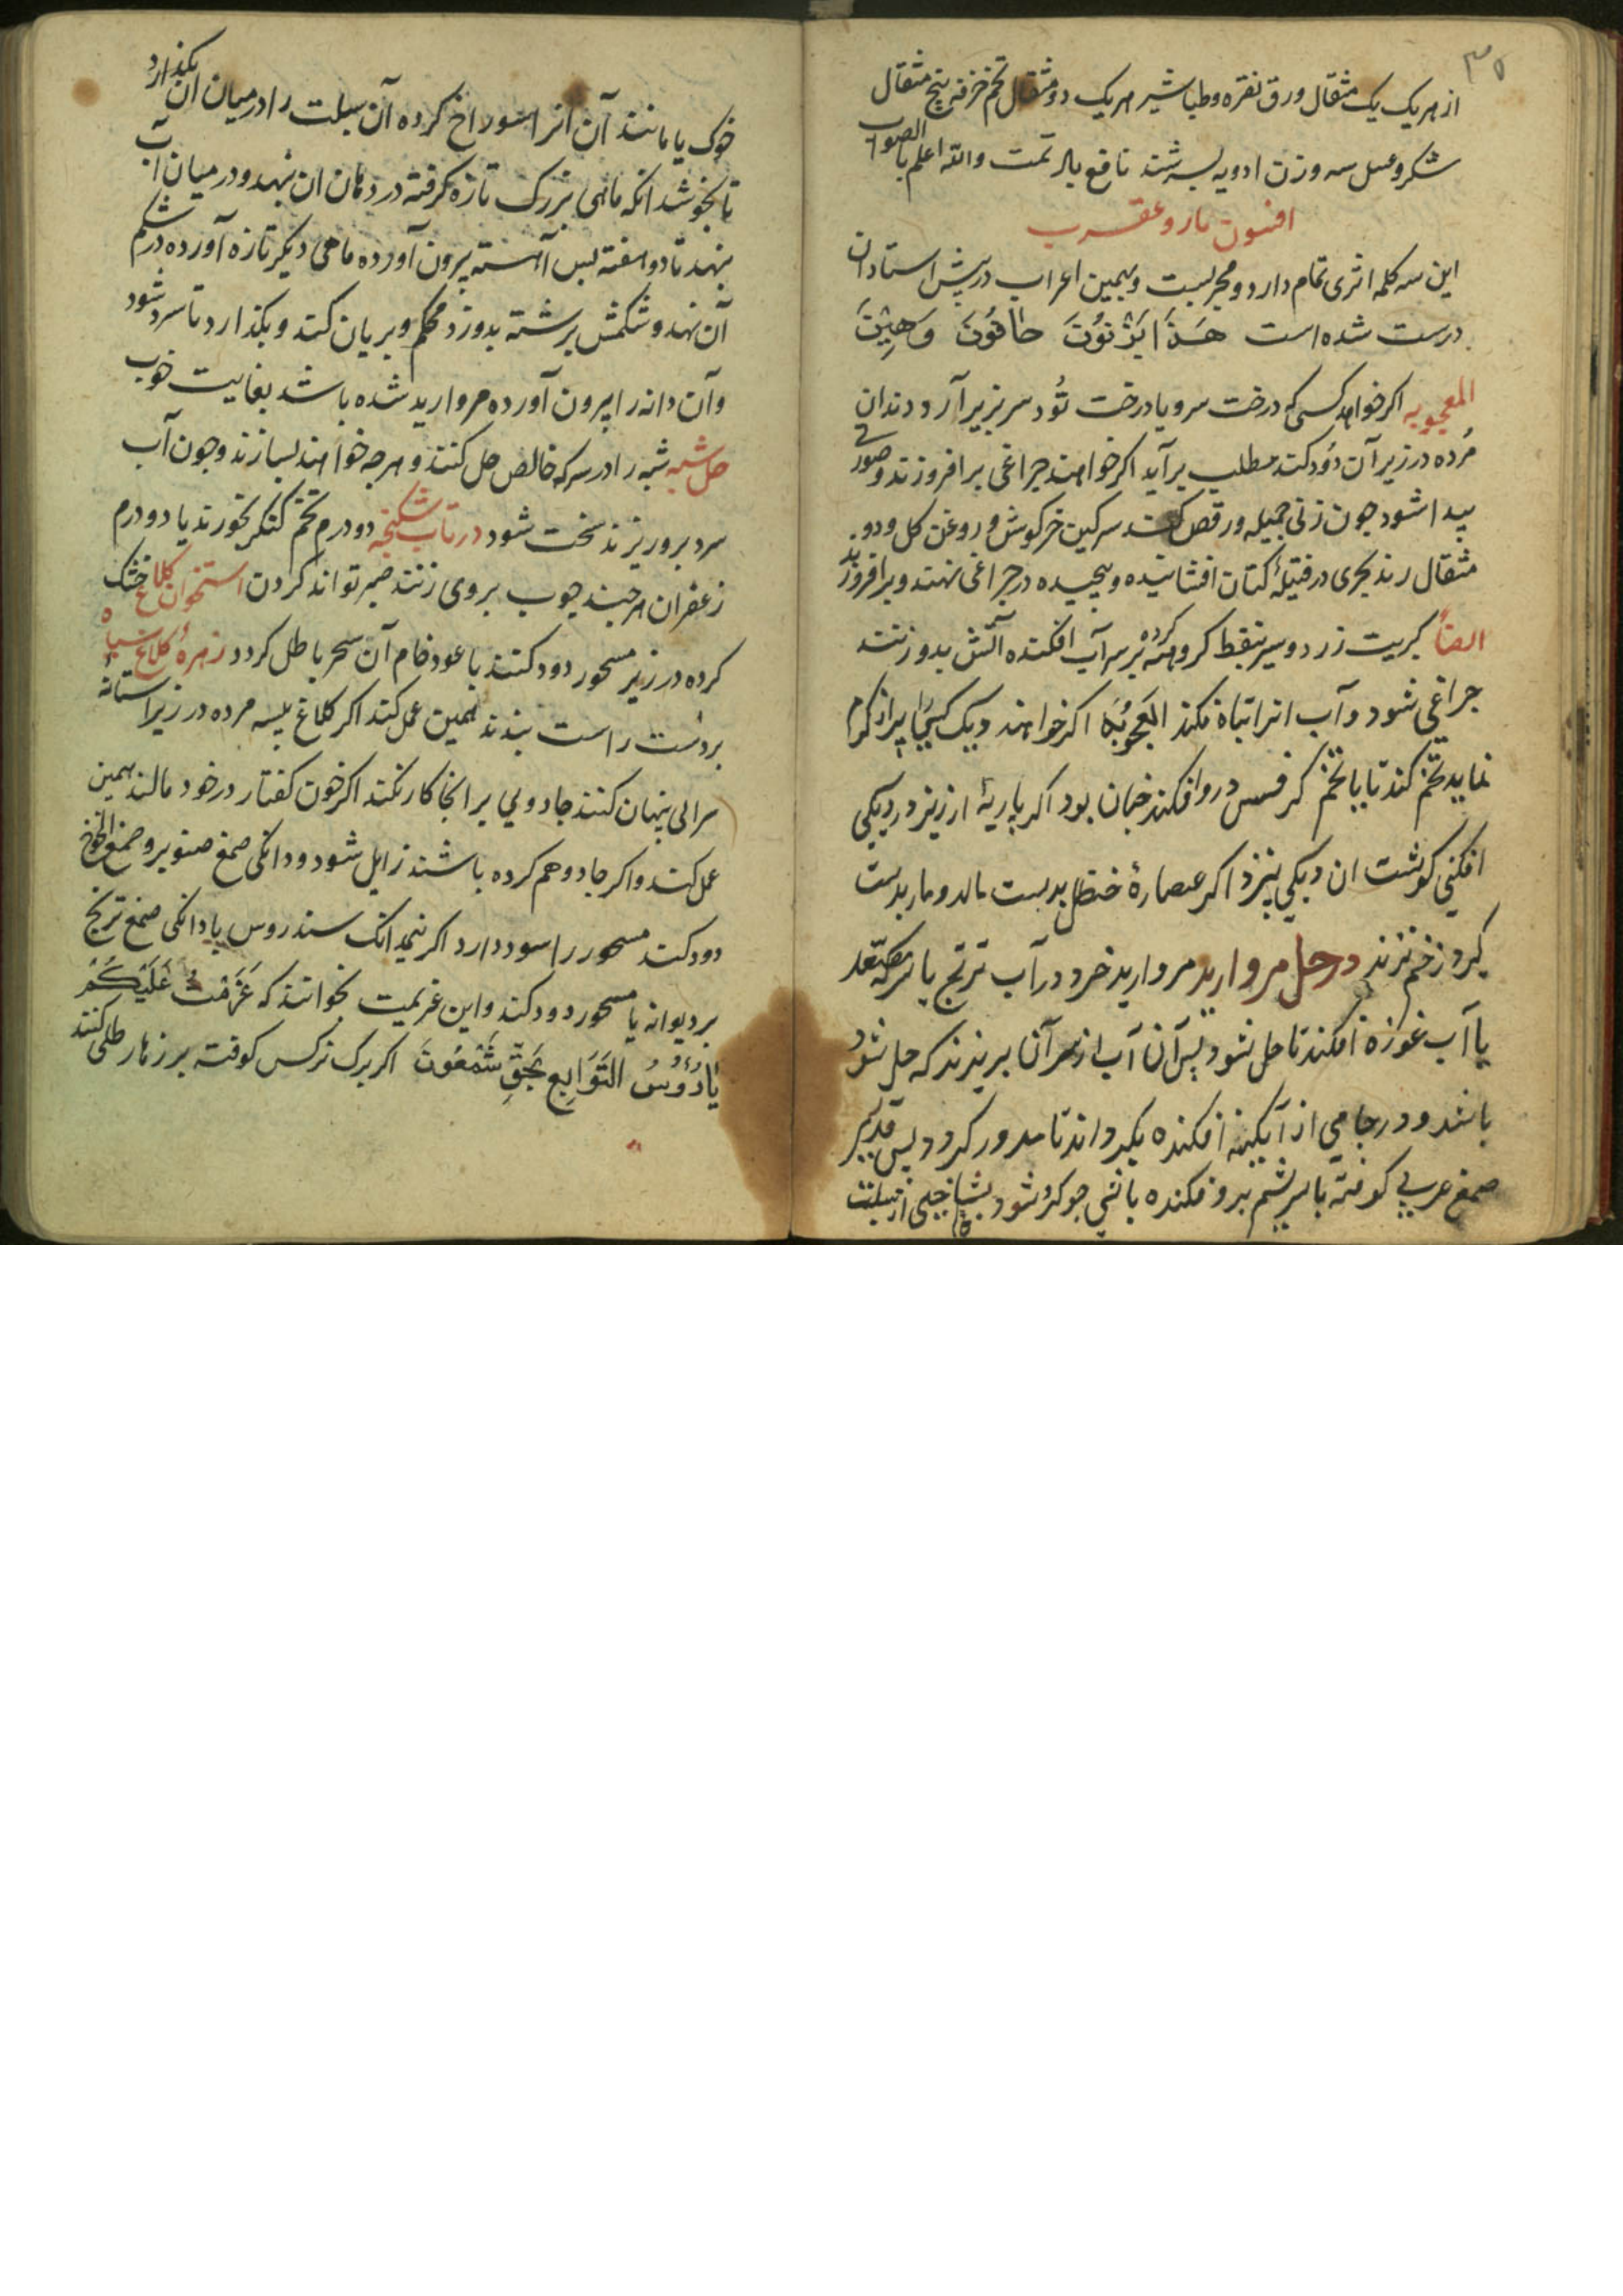 ۳۵
از هر یک یک مثقال ورق نقره و طباشیر هر یک دو مثقال تخم خرفه پنج مثقال
شکر و عسل سه وزن ادویه بسرشند نافع باد تمت والله اعلم بالصواب
افسون مار و عقرب
این سه کلمه اثری تمام دارد و مجربست و بهمین اعراب در پیش استادان
درست شده است
اکر خواهد کسی که درخت سرو یا درخت تُود سر بزیر آرد دندان
مُرده در زیر آن دود کند مطلب برآید اکر خواهند چراغی برافروزند و صورتی
پیدا شود چون زنی جمیله و رقص کند سرکین خرکوش و روغن کل و دو
مثقال زنجری در فتیلهٔ کتان افشانیده و پیچیده در چراغی نهند و برافروزند
ایضاً کبریت زرد و سیر بنفط کرده بر سر آب افکنده آتش بدو زنند
چراغی شود و آب انرا تباه نکند العجوبه اکر خواهند دیک
نماید تخم کند تا با تخم کرفس درو افکند چنان بود اکر پاریهٔ ارزیز در دیکی
افکنی کوشت ان دیکی نپزد اکر عصارهٔ حنظل بدست مالد و مار بدست
کیرد زخم نزند در حل مروارید مروارید خرد در آب ترنج یا سرکه مصعد
یا آب غوره افکند تا حل شود پس آن آب از سر آن بریزند که حل شود
باشد و در جامی از آبکینه افکنده بکرداند تا مدور کردد پس قدری
صمغ عربی کوفته با سریشم برو فکنده
خوک یا مانند آن انرا سوراخ کرده آن سبلت را در میان ان بکذارد
تا بخوشد انکه ماهی بزرک تازه کرفته در دهان ان نهد و در میان آب
نهد تا دو هفته پس آهسته بیرون آورده ماهی دیکر تازه آورده در شکم
آن نهد و شکمش برشته بدوزد محکم و بریان کند و بکذارد تا سرد شود
و آن دانه را بیرون آورده مروارید شده باشد بغایت خوب
حل شبه شبه را در سرکه خالص حل کنند و هرچه خواهند بسازند و چون آب
سرد برو ریزند سخت شود در تاب شکنجه دو درم تخم کنکر بخورند یا دو درم
زعفران هرچند چوب بروی زنند صبر تواند کردن استخوان کلاغ خشک
کرده در زیر مسحور دود کنند با عود خام آن سحر باطل کردد زهرهٔ کلاغ سیاه
بر دست راست بندند همین عمل کند اکر کلاغ پیسه مرده در زیر استانه
سرائی پنهان کنند جادویی بر انجا کار نکند اکر خون کفتار در خود مالند همین
عمل کند و اکر جادو هم کرده باشند زایل شود و دانکی صمغ صنوبر و صمغ الخوخ
دود کند مسحور را سود دارد اکر نیم دانک سندروس یا دانکی صمغ ترنج
بر دیوانه یا مسحور دود کند و این عزیمت بخوانند که عَزَمْتُ عَلَیْکُمْ
یَا رُؤُوسُ التَّوَابِعِ بَحَقِّ شَمْعُونَ اکر برک نرکس کوفته بر زهار طلی کنند